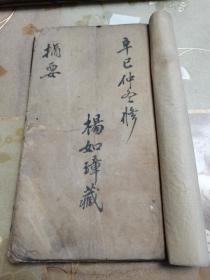 辛巳仲冬修
楊如璋藏
摘要